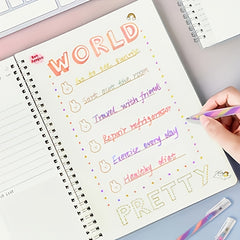 WORLD
Go to the picnic
Sort out the room
Travel with friends
Repair refrigerator
Exercise every day
Healthy diet
PRETTY